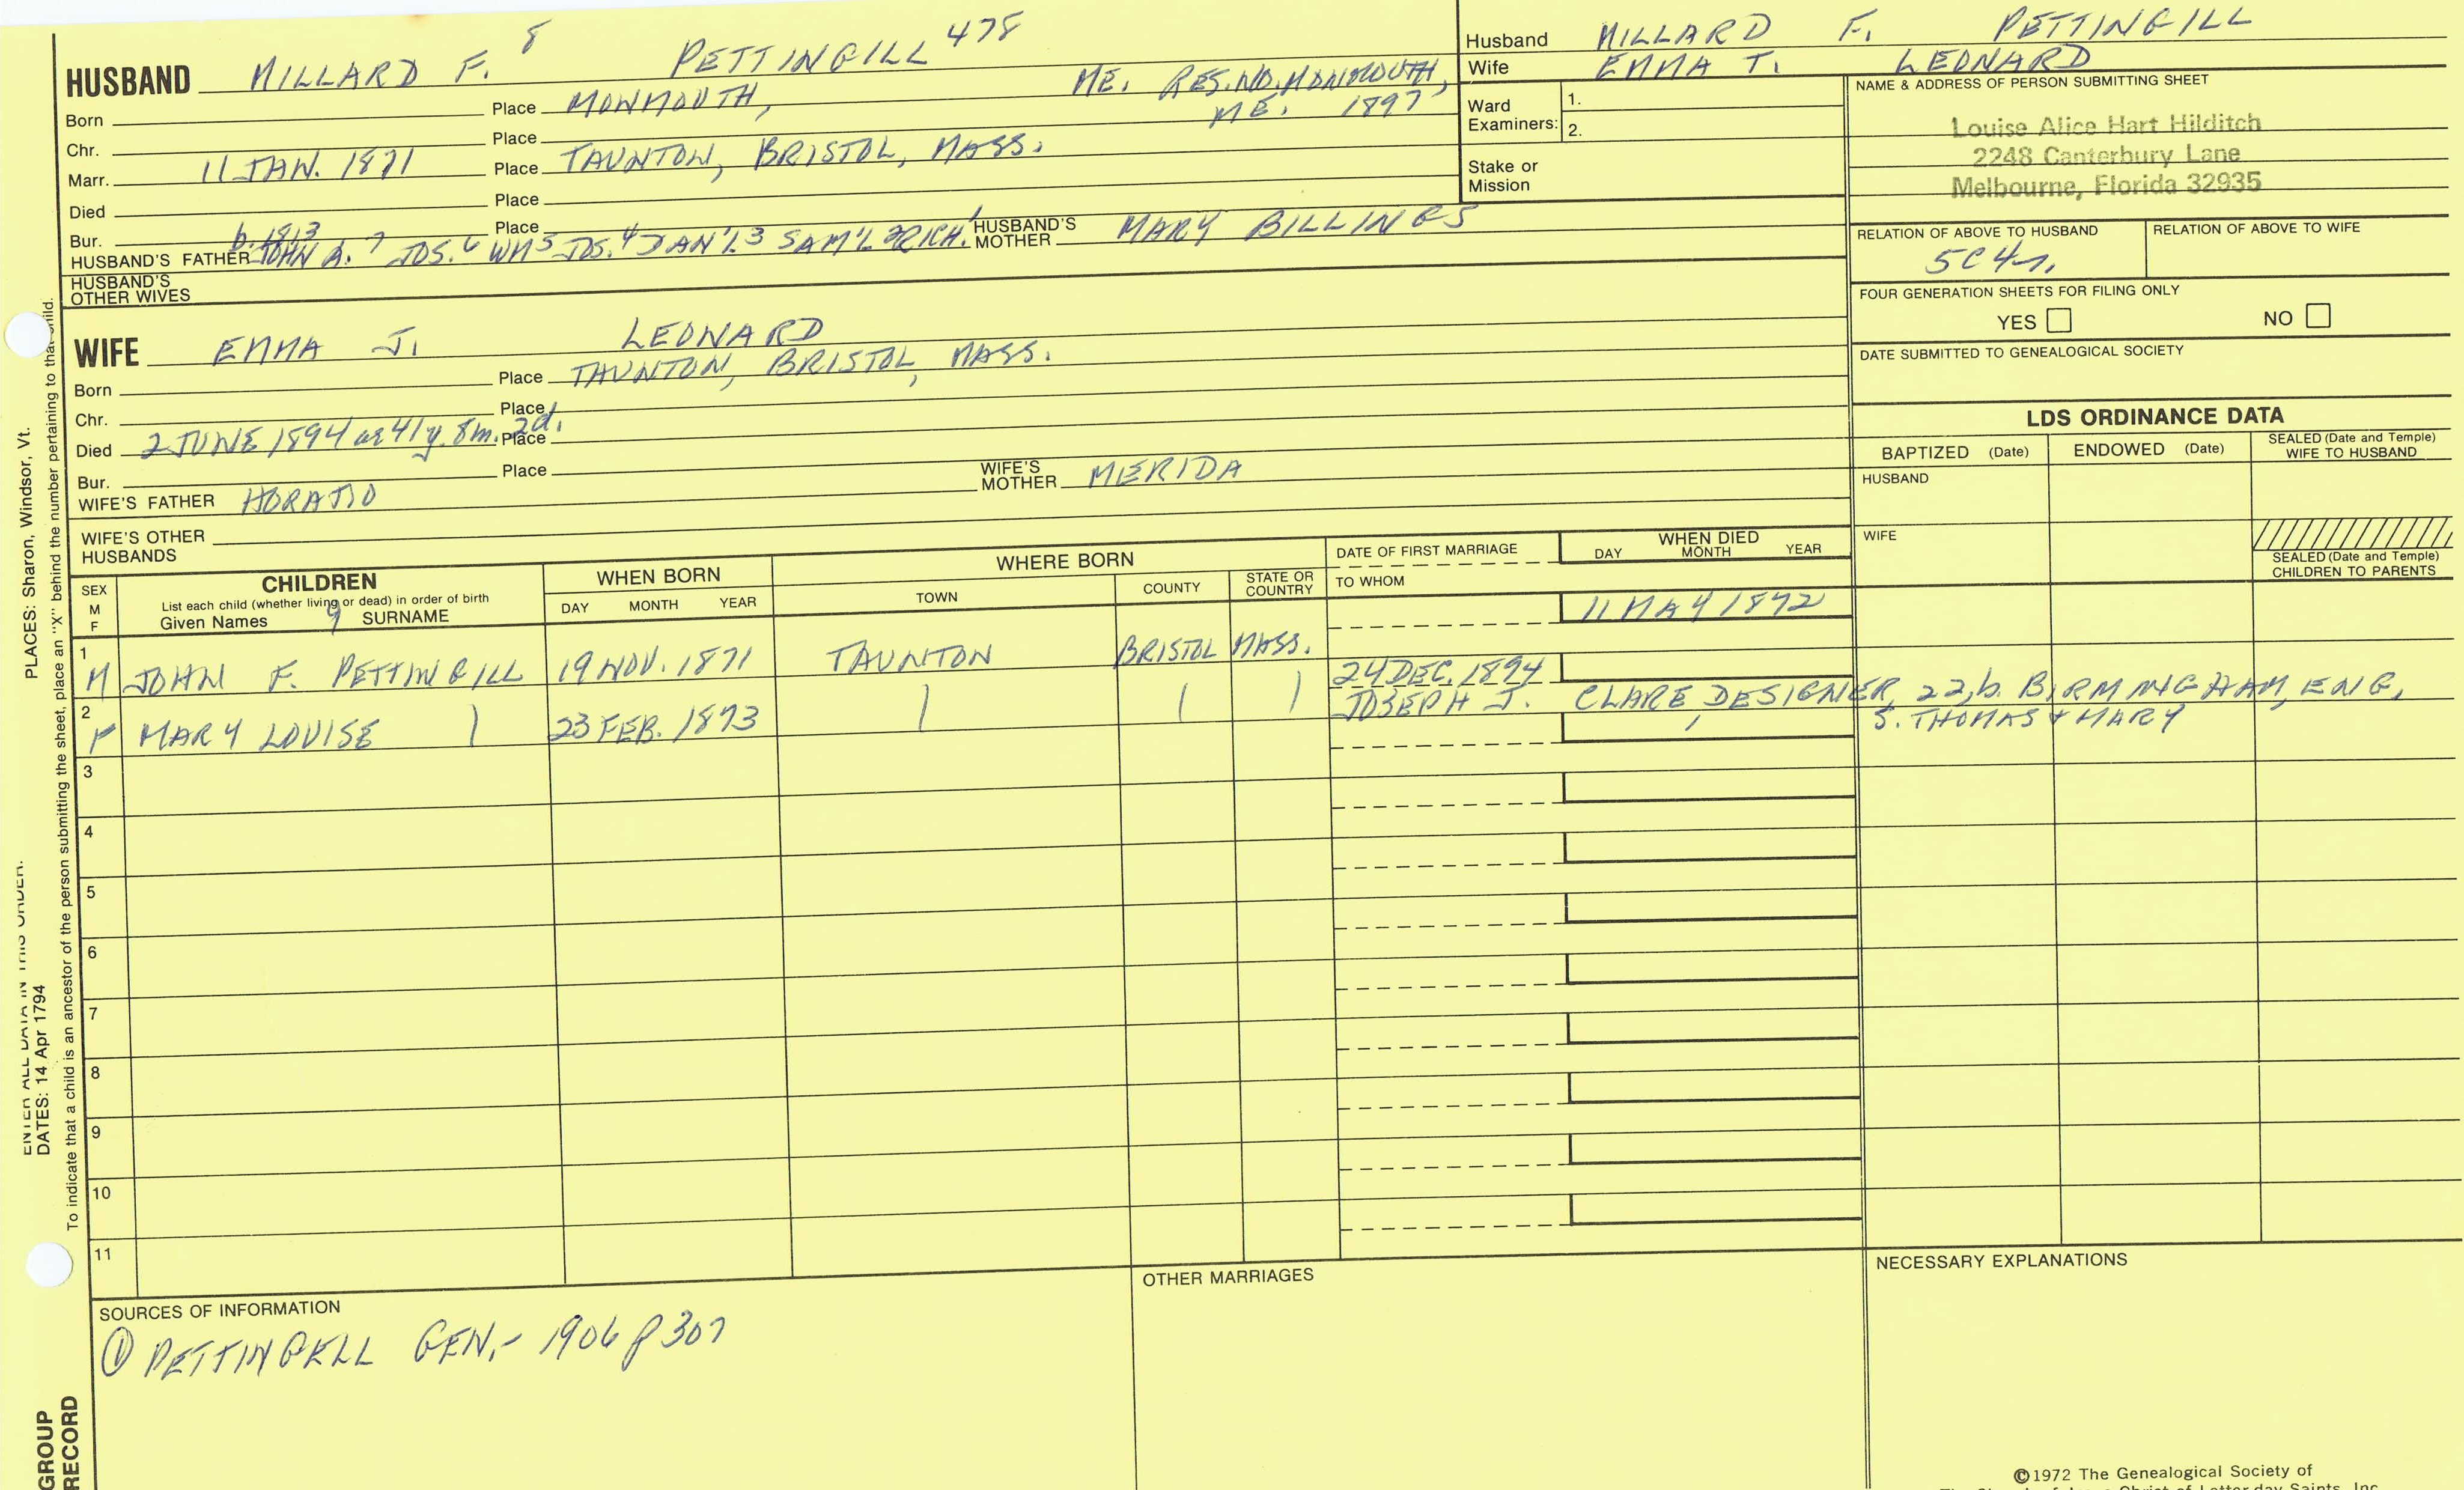 HUSBAND MILLARD F. 8 PETTINGILL 478
Born Place MONMOUTH, ME. RES. NO. MONMOUTH, ME. 1897
Chr. Place
Marr. 11 JAN. 1871 Place TAUNTON, BRISTOL, MASS.
Died Place
Bur. Place
b. 1813
HUSBAND'S FATHER JOHN A. 7 JOS. 6 WM 5 JOS. 4 DAN'L 3 SAM'L 2 RICH. 1 HUSBAND'S MOTHER MARY BILLINGS
HUSBAND'S OTHER WIVES
WIFE EMMA J. LEONARD
Born Place TAUNTON, BRISTOL, MASS.
Chr. Place
Died 2 JUNE 1894 ae 41y. 8m. 2d. Place
Bur. Place
WIFE'S FATHER HORATIO WIFE'S MOTHER MERIDA
WIFE'S OTHER HUSBANDS
Husband MILLARD F. PETTINGILL
Wife EMMA T. LEONARD
Ward Examiners: 1.
2.
Stake or Mission
NAME & ADDRESS OF PERSON SUBMITTING SHEET
Louise Alice Hart Hilditch
2248 Canterbury Lane
Melbourne, Florida 32935
RELATION OF ABOVE TO HUSBAND RELATION OF ABOVE TO WIFE
5C4r.
FOUR GENERATION SHEETS FOR FILING ONLY
YES NO
DATE SUBMITTED TO GENEALOGICAL SOCIETY
LDS ORDINANCE DATA
BAPTIZED (Date) ENDOWED (Date) SEALED (Date and Temple) WIFE TO HUSBAND
HUSBAND
WIFE
SEALED (Date and Temple) CHILDREN TO PARENTS
SEX M F
CHILDREN
List each child (whether living or dead) in order of birth
Given Names 9 SURNAME
WHEN BORN
DAY MONTH YEAR
WHERE BORN
TOWN COUNTY STATE OR COUNTRY
DATE OF FIRST MARRIAGE
TO WHOM
WHEN DIED
DAY MONTH YEAR
1 M JOHN F. PETTINGILL 19 NOV. 1871 TAUNTON BRISTOL MASS. 11 MAY 1872
2 F MARY LOUISE 23 FEB. 1873 24 DEC. 1894
JOSEPH J. CLARE, DESIGNER, 22, b. BIRMINGHAM, ENG,
S. THOMAS & MARY
3
4
5
6
7
8
9
10
11
SOURCES OF INFORMATION
① PETTINGELL GEN.- 1906 p 307
OTHER MARRIAGES
NECESSARY EXPLANATIONS
©1972 The Genealogical Society of
PLACES: Sharon, Windsor, Vt.
ENTER ALL DATA IN THIS ORDER.
DATES: 14 Apr 1794
To indicate that a child is an ancestor of the person submitting the sheet, place an "X" behind the number pertaining to that child.
GROUP
RECORD